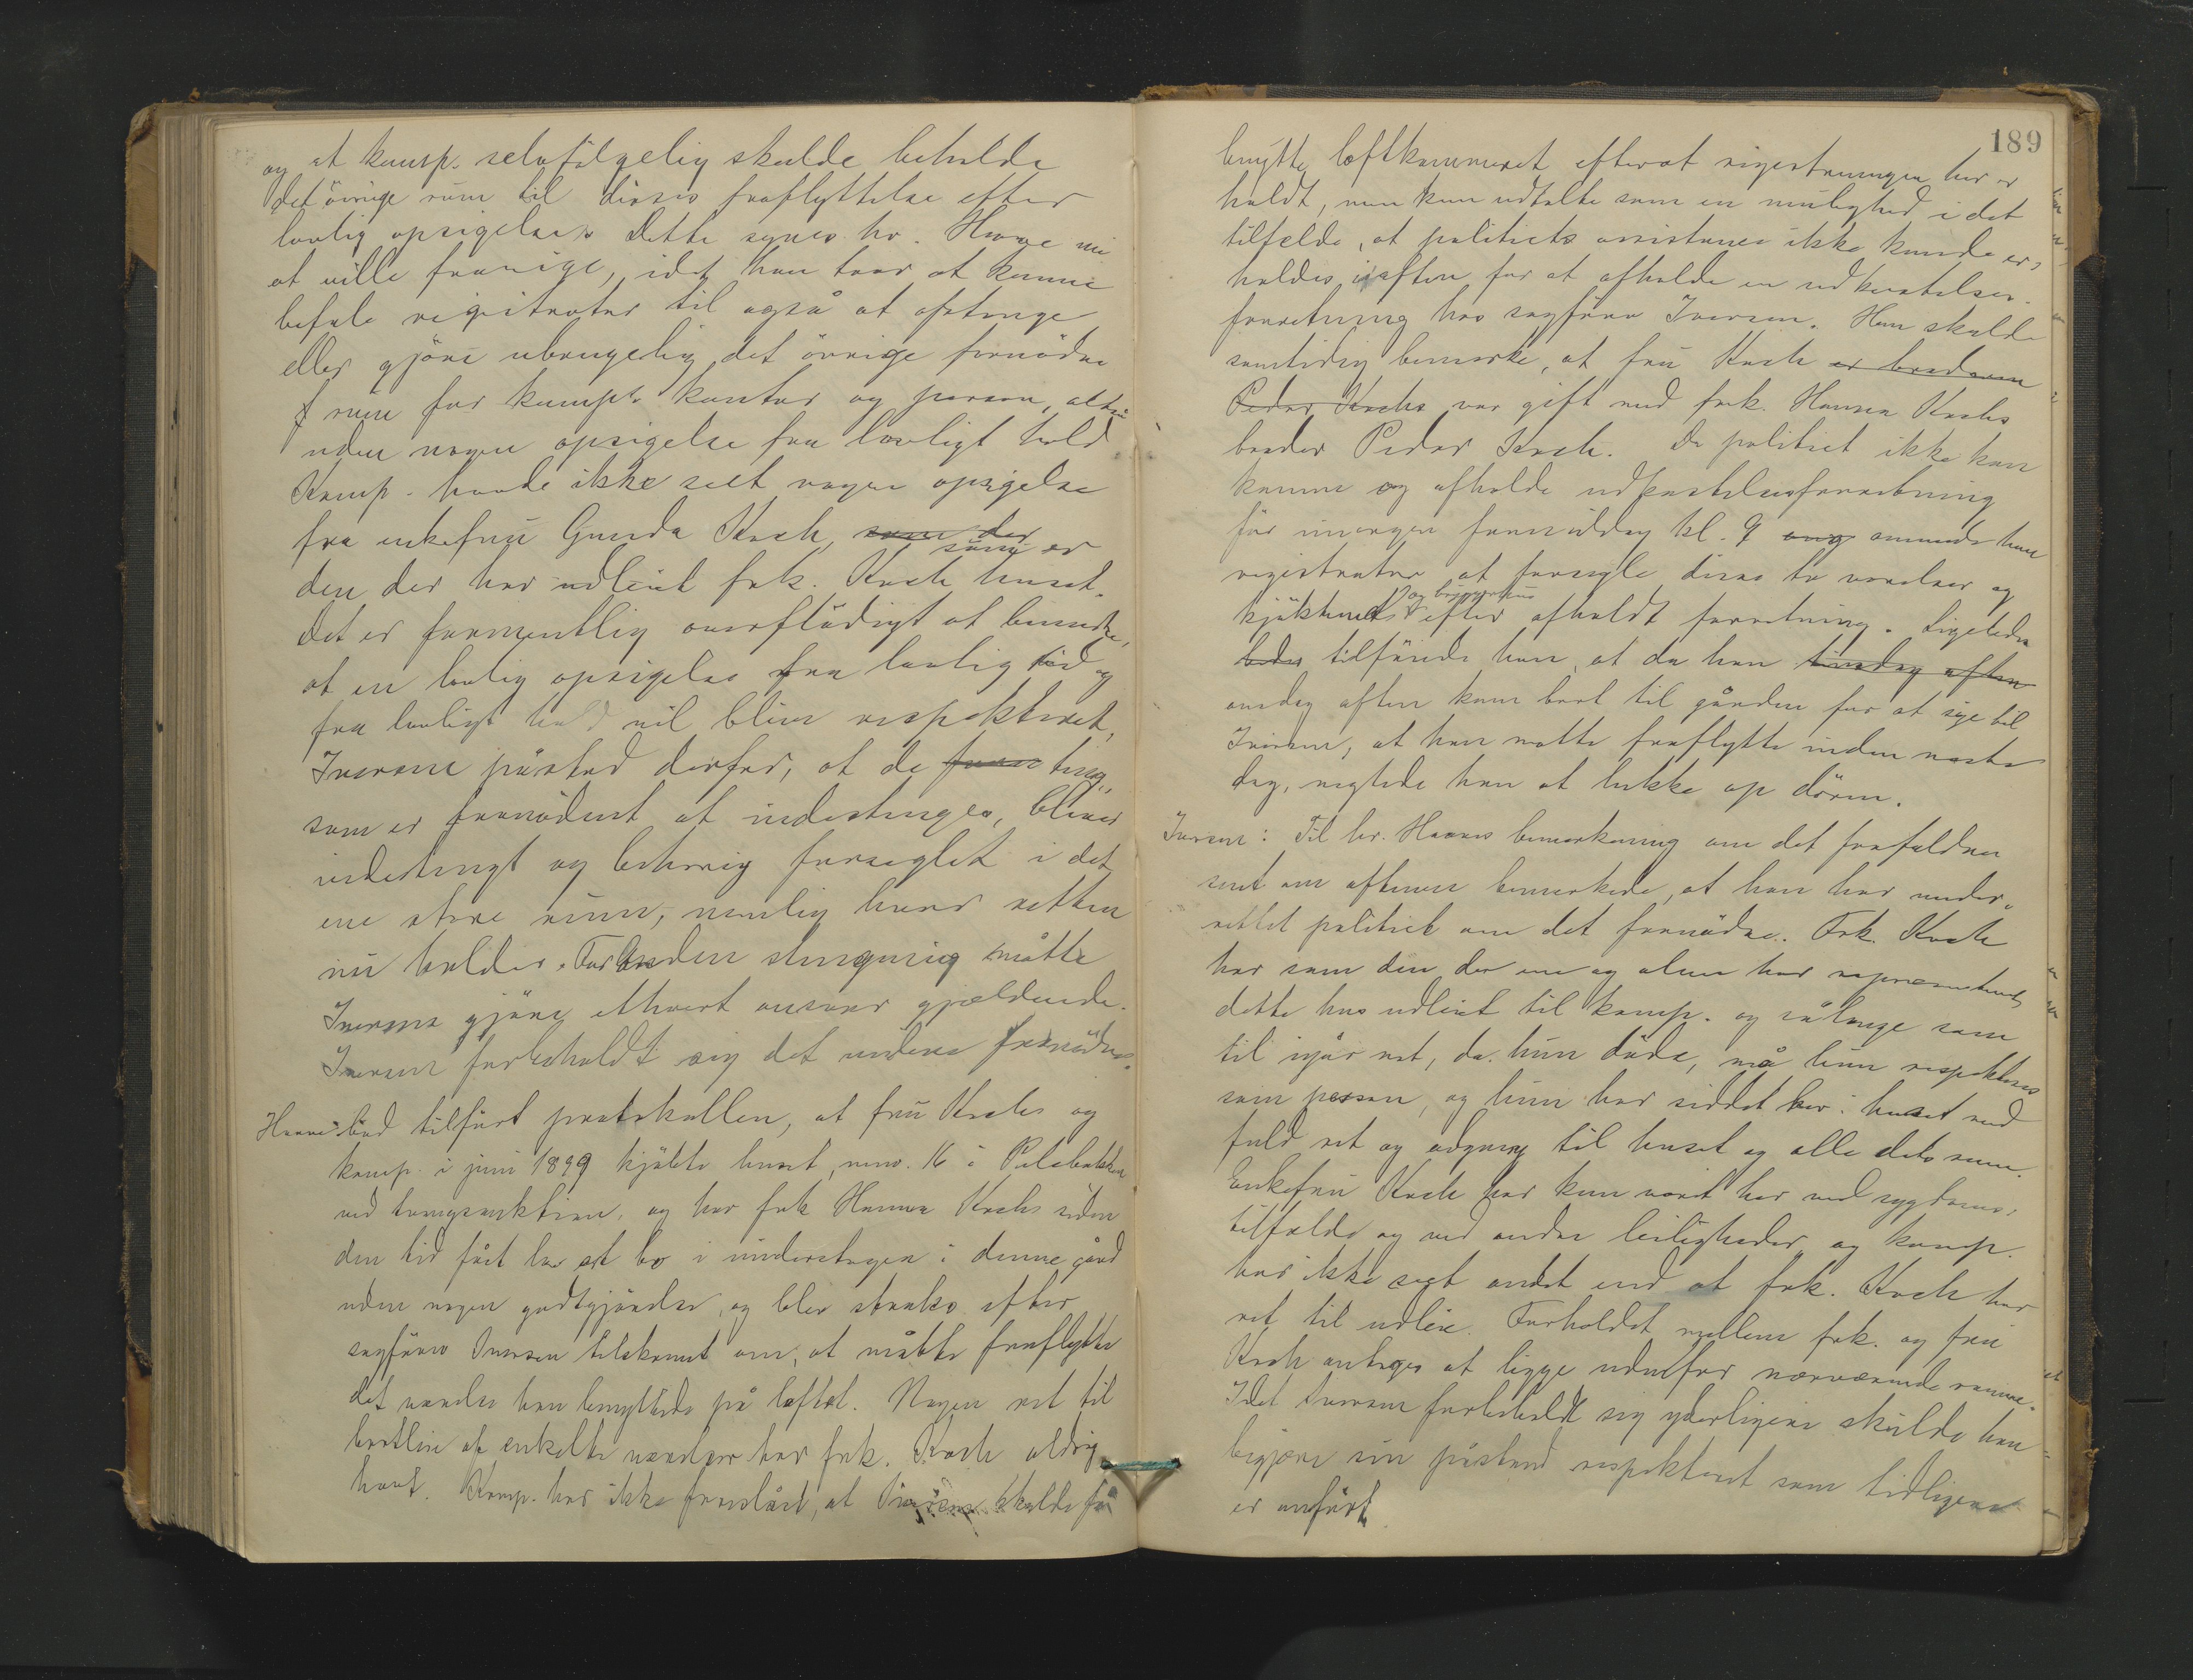 og at komp. selvfölgelig skulde beholde
det övrige rum til disses fraflyttelse efter
lovlig opsigelse. Dette synes hr. Haave nu
at ville fravige, idet han tror at kunne
befale registrator til også at afstenge
eller gjöre ubrugelig det övrige fornödne
rum for komps kontor og person, altså
uden nogen opsigelse fra lovligt hold
Komp. havde ikke seet nogen opsigelse
fra enkefru Gunda Koch, som der
den der har udleiet frk. Koch huset.
Det er formentlig overflödigt at bemerke,
at en lovlig opsigelse fra lovlig tid og
fra lovligt hold vil blive respekteret,
Iversen påstod derfor, at de ting,
som er fornödent at indestenges, bliver
indestengt og behörig forseglet i det
ene store rum, nemlig hvor retten
nu holdes. For anden stengning måtte
Iversen gjöre ethvert ansvar gjældende.
Iversen forbeholdt sig det videre fornödne.
Haave bad tilfört protokollen, at fru Koch og
komp. i juni 1899 kjöbte huset, nno. 16 i
ved tvangsauktion, og har frk Hanna Koch siden
den tid fået lov at bo i underetagen i denne gård
uden nogen godtgjörelse, og blev straks efter
sagförer Iversen tilkommet om, at måtte fraflytte
det værelse han benyttede på loftet. Nogen ret til
bortleie af enkelte værelser har frk. Koch aldrig
havt. Komp. har ikke foreslået, at Iversen skulde få
189
benytte loftkammeret efterat registreringen her er
holdt, men kun udtalte som en mulighed i det
tilfælde, at politiets assistance ikke kunde er-
holdes iaften for at afholde en udkastelses-
forretning hos sagförer Iversen. Han skulde
samtidig bemerke, at fru Koch er broderen
Peder Kochs var gift med frk. Hanna Kochs
broder Peder Koch. Da politiet ikke kan
komme og afholde udkastelsesforretning
för imorgen formiddag kl. 9 anmode han
registrator at forsegle disse to værelser og
og bryggerhus
kjökkenet efter afholdt forretning. Ligeledes
tilföiede han, at da han tirsdag aften
onsdag aften kom bort til gården for at sige til
Iversen, at han måtte fraflytte inden næste
dag, negtede han at lukke op dören.
Iversen: Til hr. Haaves bemerkning om det forefaldne
sent om aftenen bemerkede, at han har under-
rettet politiet om det fornödne. Frk. Koch
har som den der ene og alene har repræsenteret
dette hus udleiet til komp. og sålenge som
til igår nat, da hun döde, må hun respekteres
som person, og hun har siddet her i huset med
fuld ret og adgang til huset og alle dets rum.
Enkefru Koch har kun været her ved sygdoms-
tilfælde og ved andre leiligheder, og komp.
har ikke sagt andet end at frk. Koch har
ret til udleie. Forholdet mellem frk. og fru
Koch antages at ligge udenfor nærværende ramme.
Idet Iversen forbeholdt sig yderligere skulde han
begjære sin påstand respekteret som tidligere
er anfört